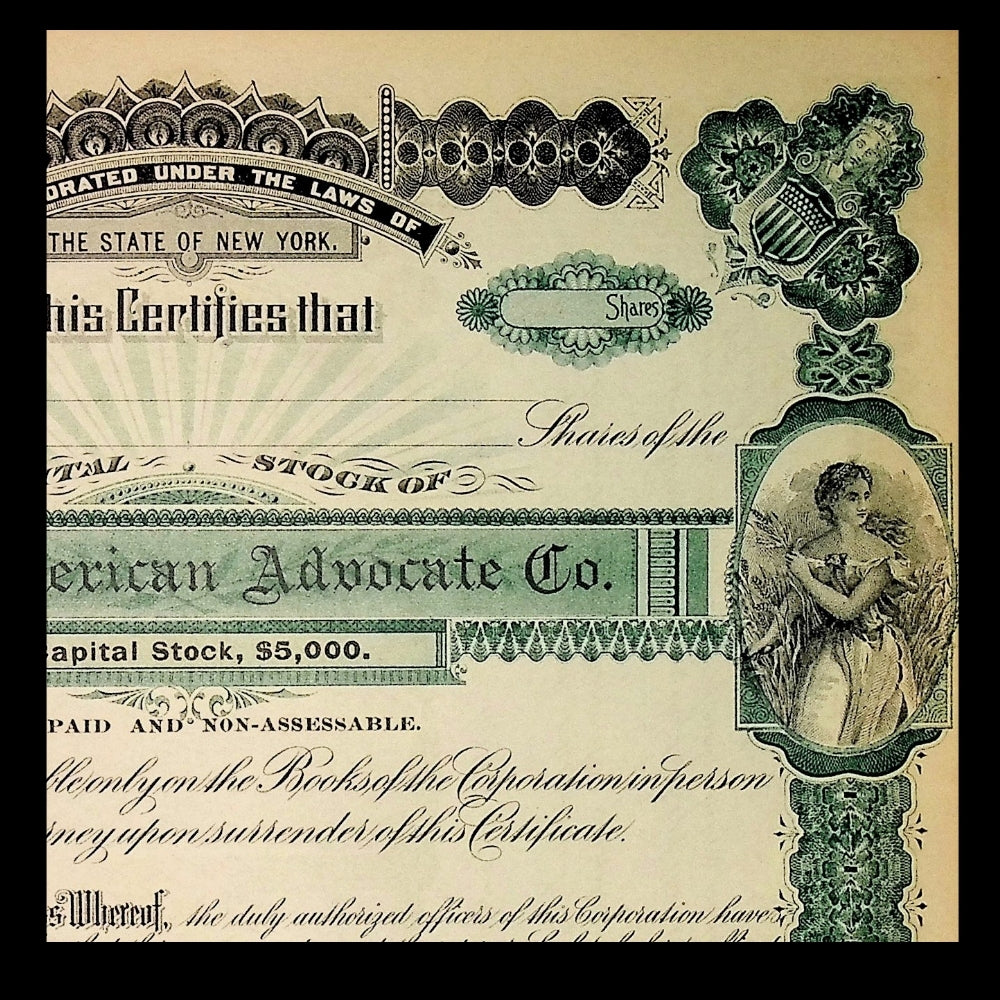 ORATED UNDER THE LAWS OF
THE STATE OF NEW YORK.
his Certifies that
Shares
Shares of the
ITAL STOCK OF
erican Advocate Co.
apital Stock, $5,000.
PAID AND NON-ASSESSABLE.
ble only on the Books of the Corporation in person
rney upon surrender of this Certificate.
s Whereof, the duly authorized officers of this Corporation have